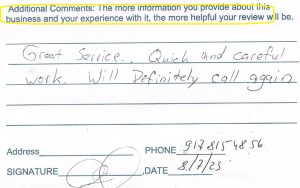 Additional Comments: The more information you provide about this
business and your experience with it, the more helpful your review will be.
Great Service.. Quick and careful
work. Will Definitely call again
Address
PHONE 9178154856
SIGNATURE
DATE 8/7/23